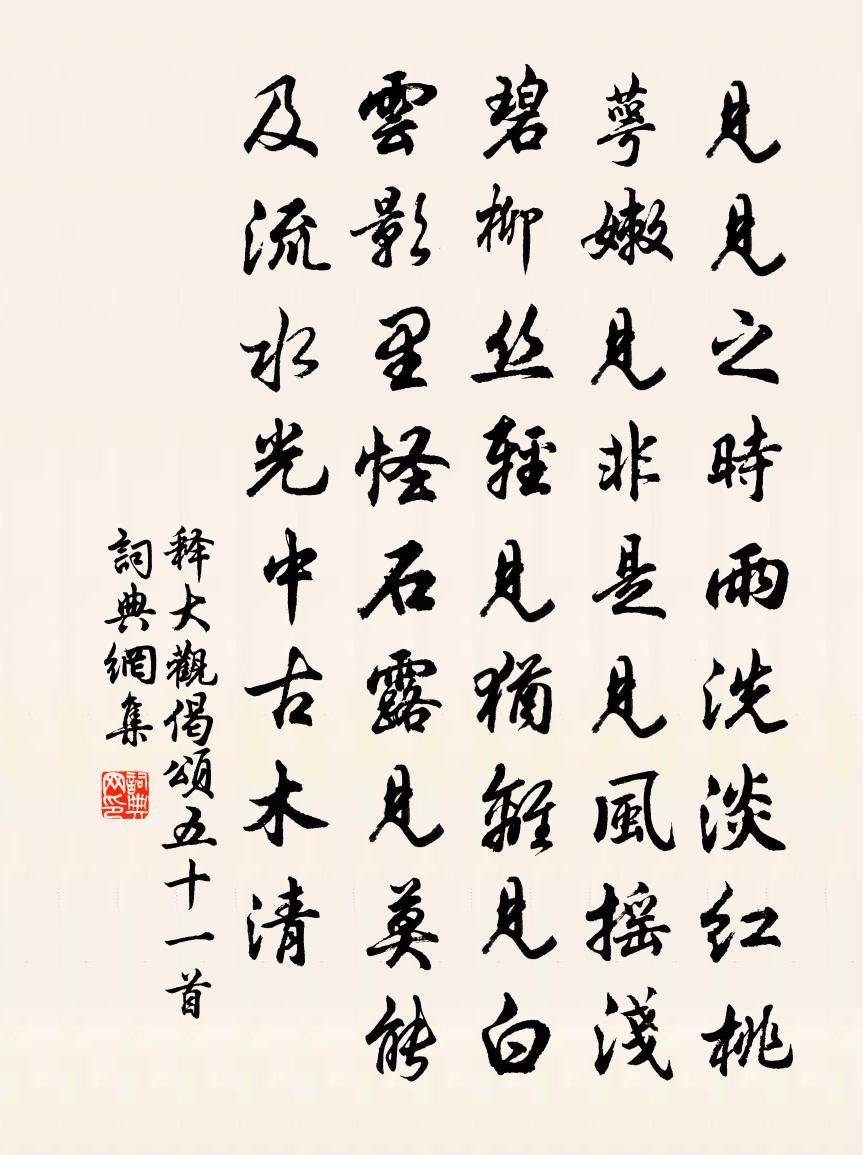 見見之時雨洗淡红桃
萼嫩見非是見風摇淺
碧柳丝輕見猶離見白
雲影里怪石露見莫能
及流水光中古木清
释大觀偈頌五十一首
詞典網集
詞典网印